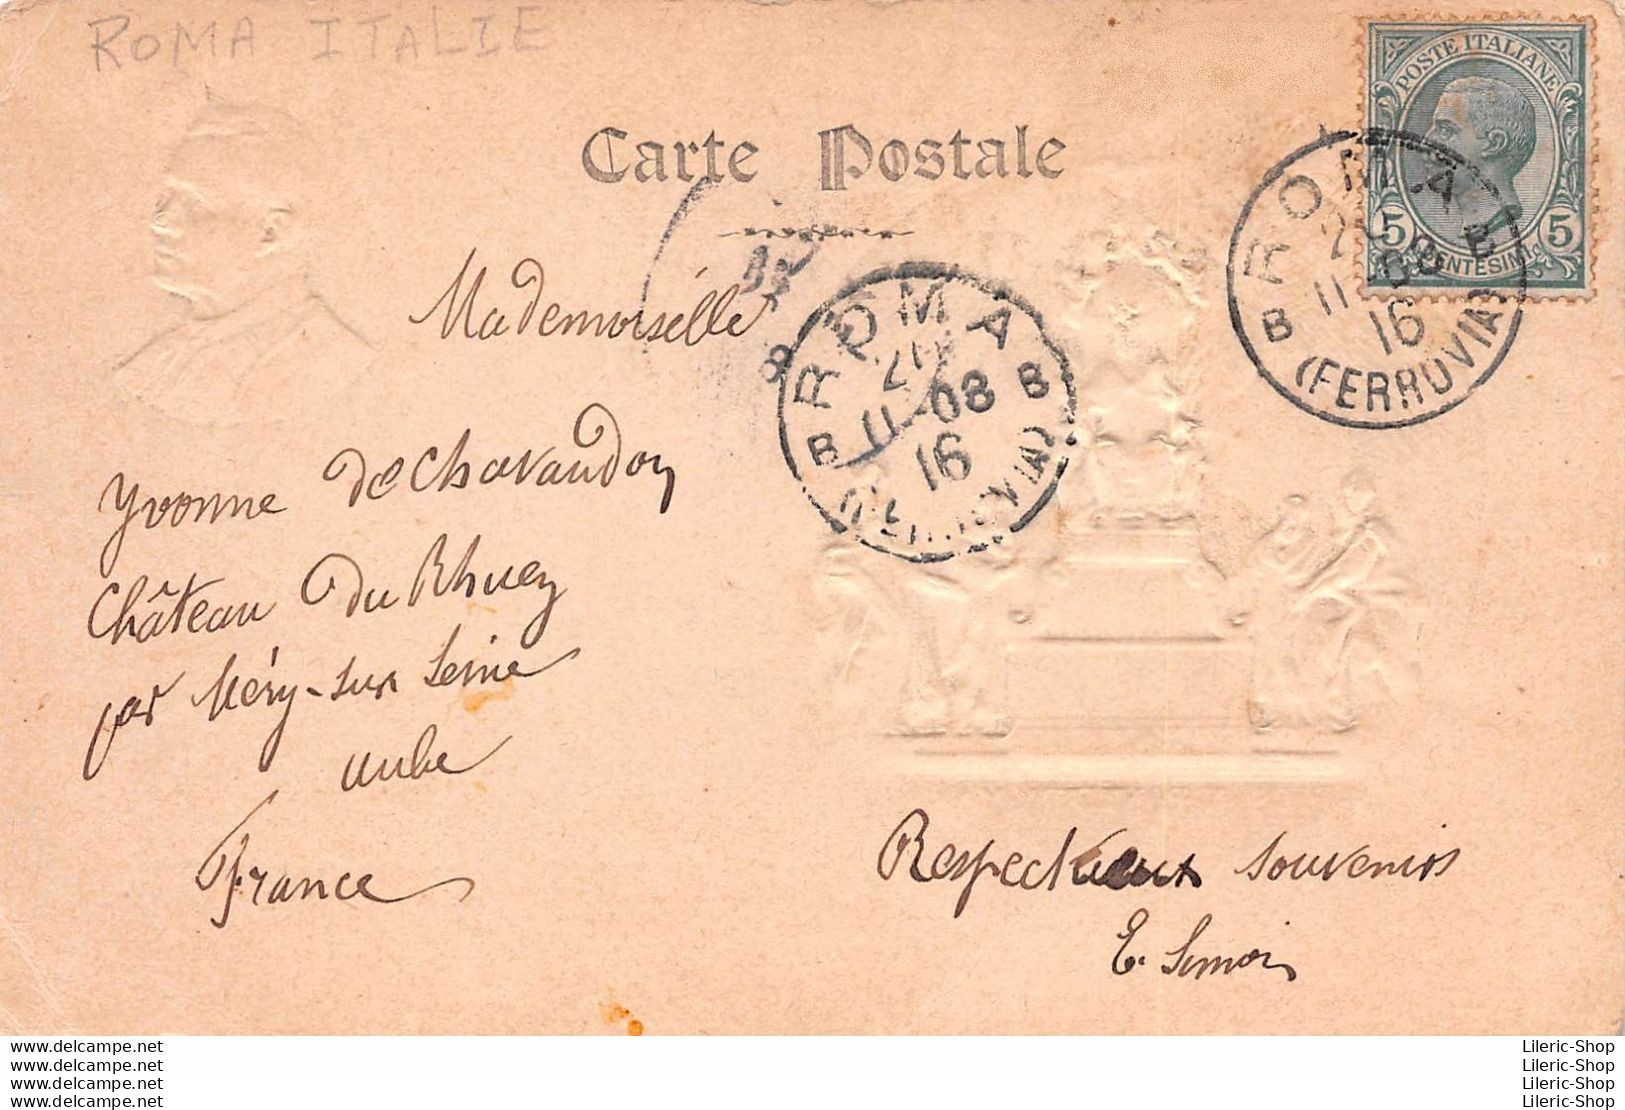 ROMA ITALIE
POSTE ITALIANE
5 CENTESIMI 5
Carte Postale
ROMA
11 08
16
B (FERROVIA)
ROMA
B 11 08 B
16
(FERROVIA)
Mademoiselle
Yvonne de Chavaudon
Château du Rhuez
par Méry-sur Seine
Aube
France
Respectueux souvenirs
E. Simon
www.delcampe.net
www.delcampe.net
www.delcampe.net
www.delcampe.net
Lileric-Shop
Lileric-Shop
Lileric-Shop
Lileric-Shop